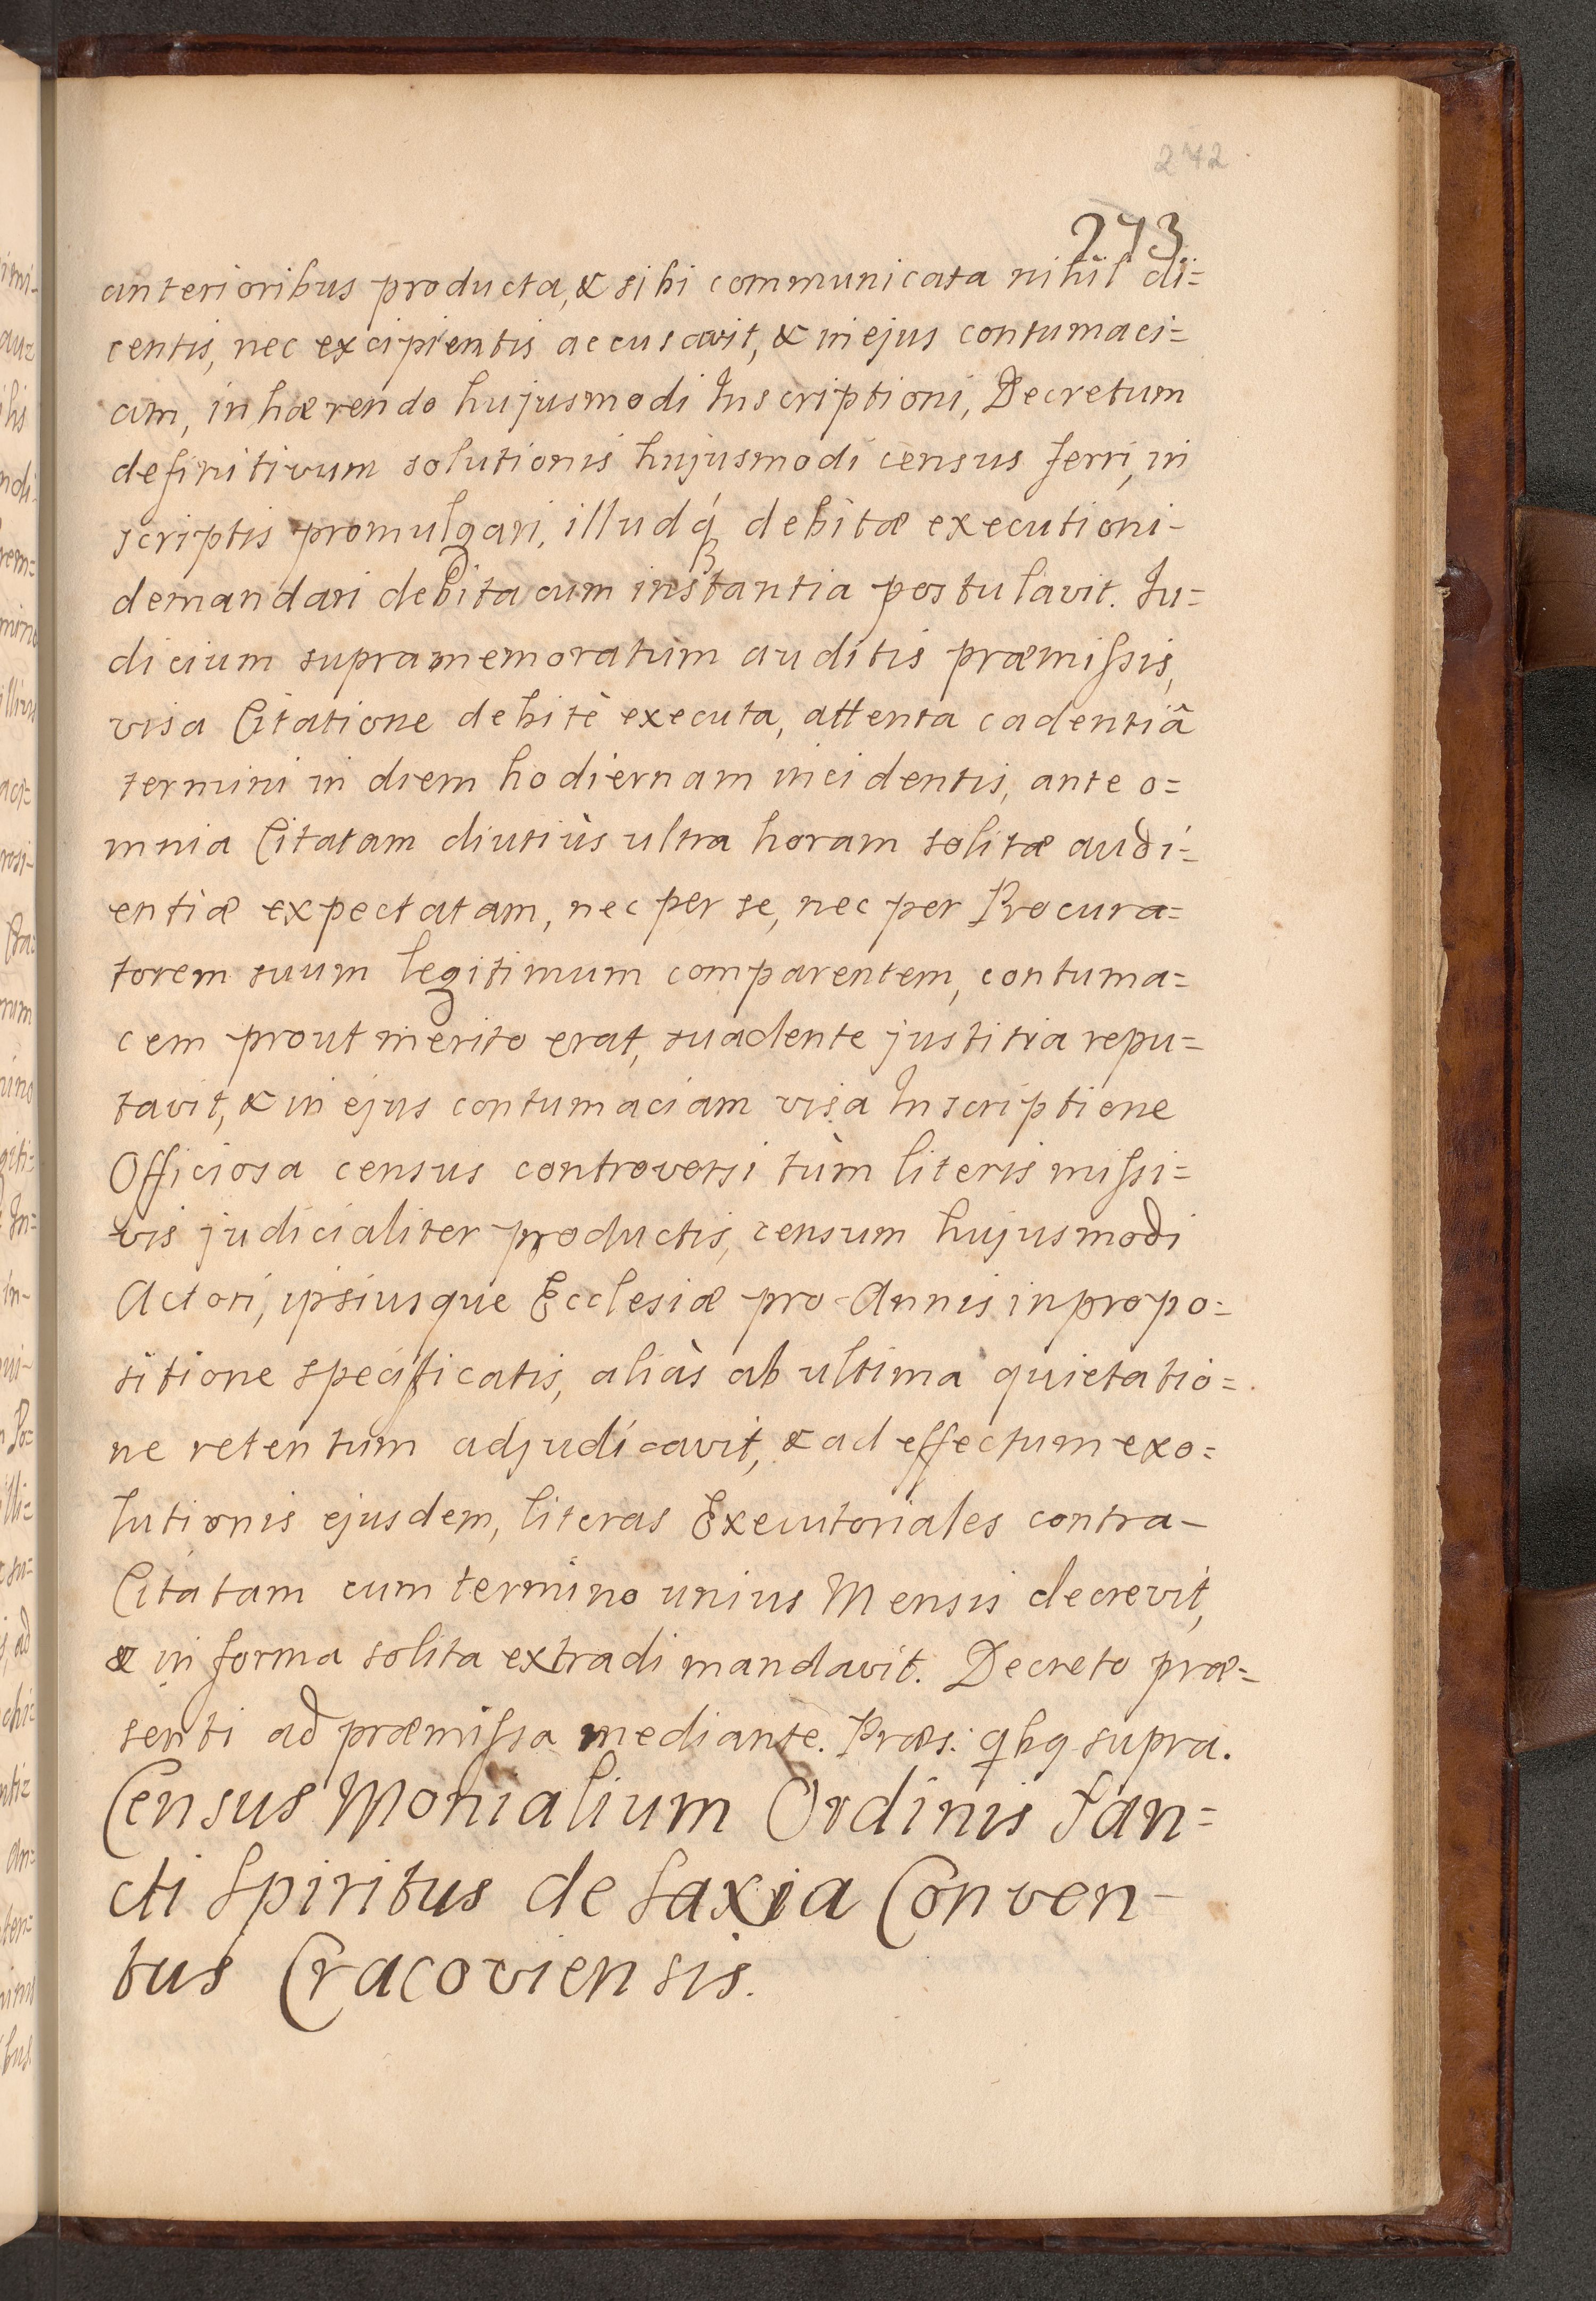 242
273
anterioribus producta, & sibi communicata nihil di=
centis, nec excipientis accusavit, & in ejus contumaci=
am, inhærendo hujusmodi Inscriptioni, Decretum
definitivum solutionis hujusmodi census ferri, in
scriptis promulgari, illudq́ꝫ debitæ executioni-
demandari debita cum instantia postulavit. Iu=
dicium supramemoratum auditis præmissis,
visa Citatione debitè executa, attenta cadentiâ
termini in diem hodiernam incidentis, ante o=
mnia Citatam diutiùs ultra horam solitæ audi=
entiæ expectatam, nec per se, nec per Procura=
torem suum legitimum comparentem, contuma=
cem prout merito erat, suadente justitia repu=
tavit, & in ejus contumaciam visa Inscriptione
Officiosa census controversi tùm literis missi=
vis judicialiter productis, censum hujusmodi
Actori, ipsiusque Ecclesiæ pro Annis in propo=
sitione specificatis, aliàs ab ultima quietatio=
ne retentum adjudicavit, & ad effectum exo=
lutionis ejusdem, literas Executoriales contra-
Citatam cum termino unius Mensis decrevit,
& in forma solita extradi mandavit. Decreto præ=
senti ad præmissa mediante. Præs: qbq supra.
Census Monialium Ordinis San=
cti Spiritus de Saxia Conven-
tus Cracoviensis.